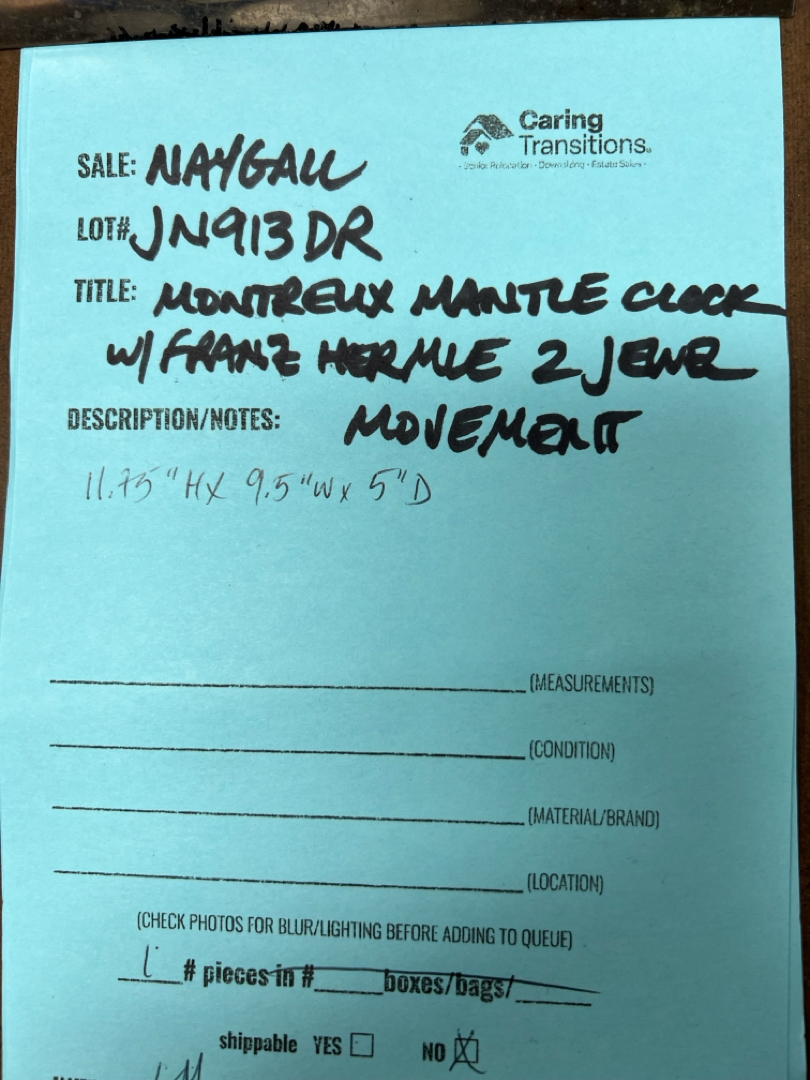 Caring
Transitions®
- Senior Relocation - Downsizing - Estate Sales -
SALE: NAYGALL
LOT# JN913DR
TITLE: MONTREUX MANTLE CLOCK
W/ FRANZ HERMLE 2 JEWEL
DESCRIPTION/NOTES: MOVEMENT
11.75"H X 9.5"W x 5"D
(MEASUREMENTS)
(CONDITION)
(MATERIAL/BRAND)
(LOCATION)
(CHECK PHOTOS FOR BLUR/LIGHTING BEFORE ADDING TO QUEUE)
1 # pieces in #_____boxes/bags/_____
shippable YES ☐ NO ☒